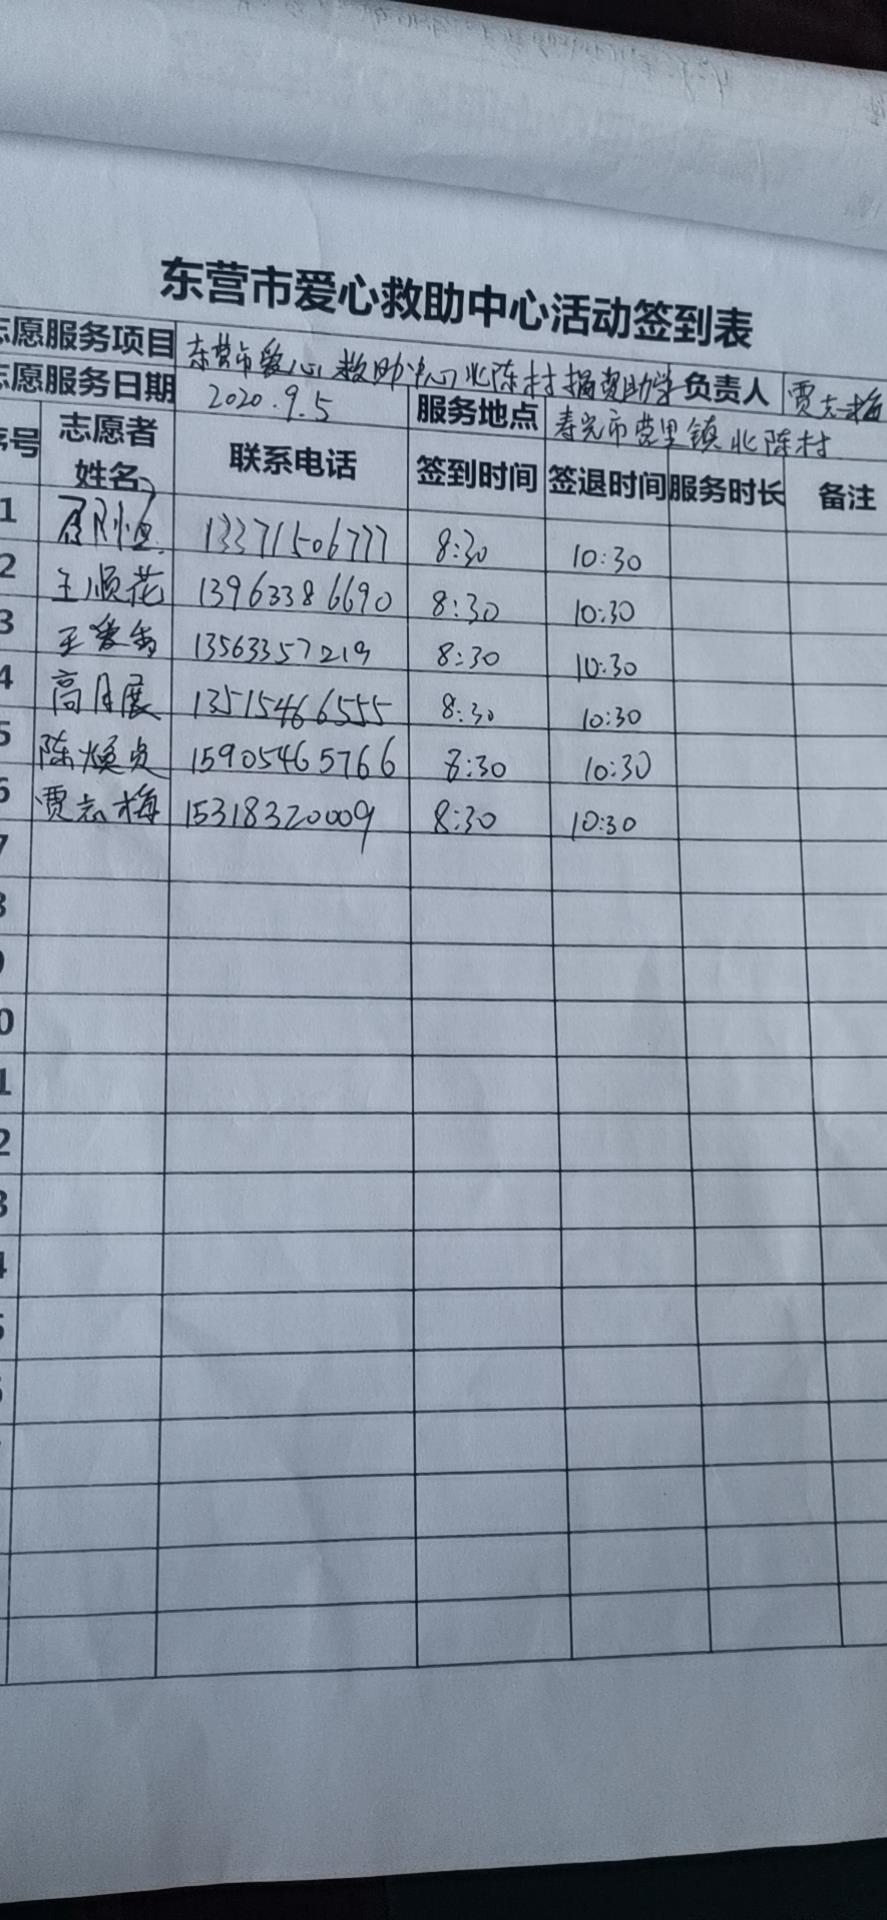 东营市爱心救助中心活动签到表
志愿服务项目 东营市爱心救助中心北陈村捐资助学 负责人 贾志梅
志愿服务日期 2020.9.5 服务地点 寿光市营里镇北陈村
序号 志愿者姓名 联系电话 签到时间 签退时间 服务时长 备注
1 13371506777 8:30 10:30
2 王顺花 13963386690 8:30 10:30
3 王爱 13563357219 8:30 10:30
4 高月展 13515466555 8:30 10:30
5 陈焕贞 15905465766 8:30 10:30
6 贾志梅 15318320009 8:30 10:30
7
8
9
10
11
12
13
14
15